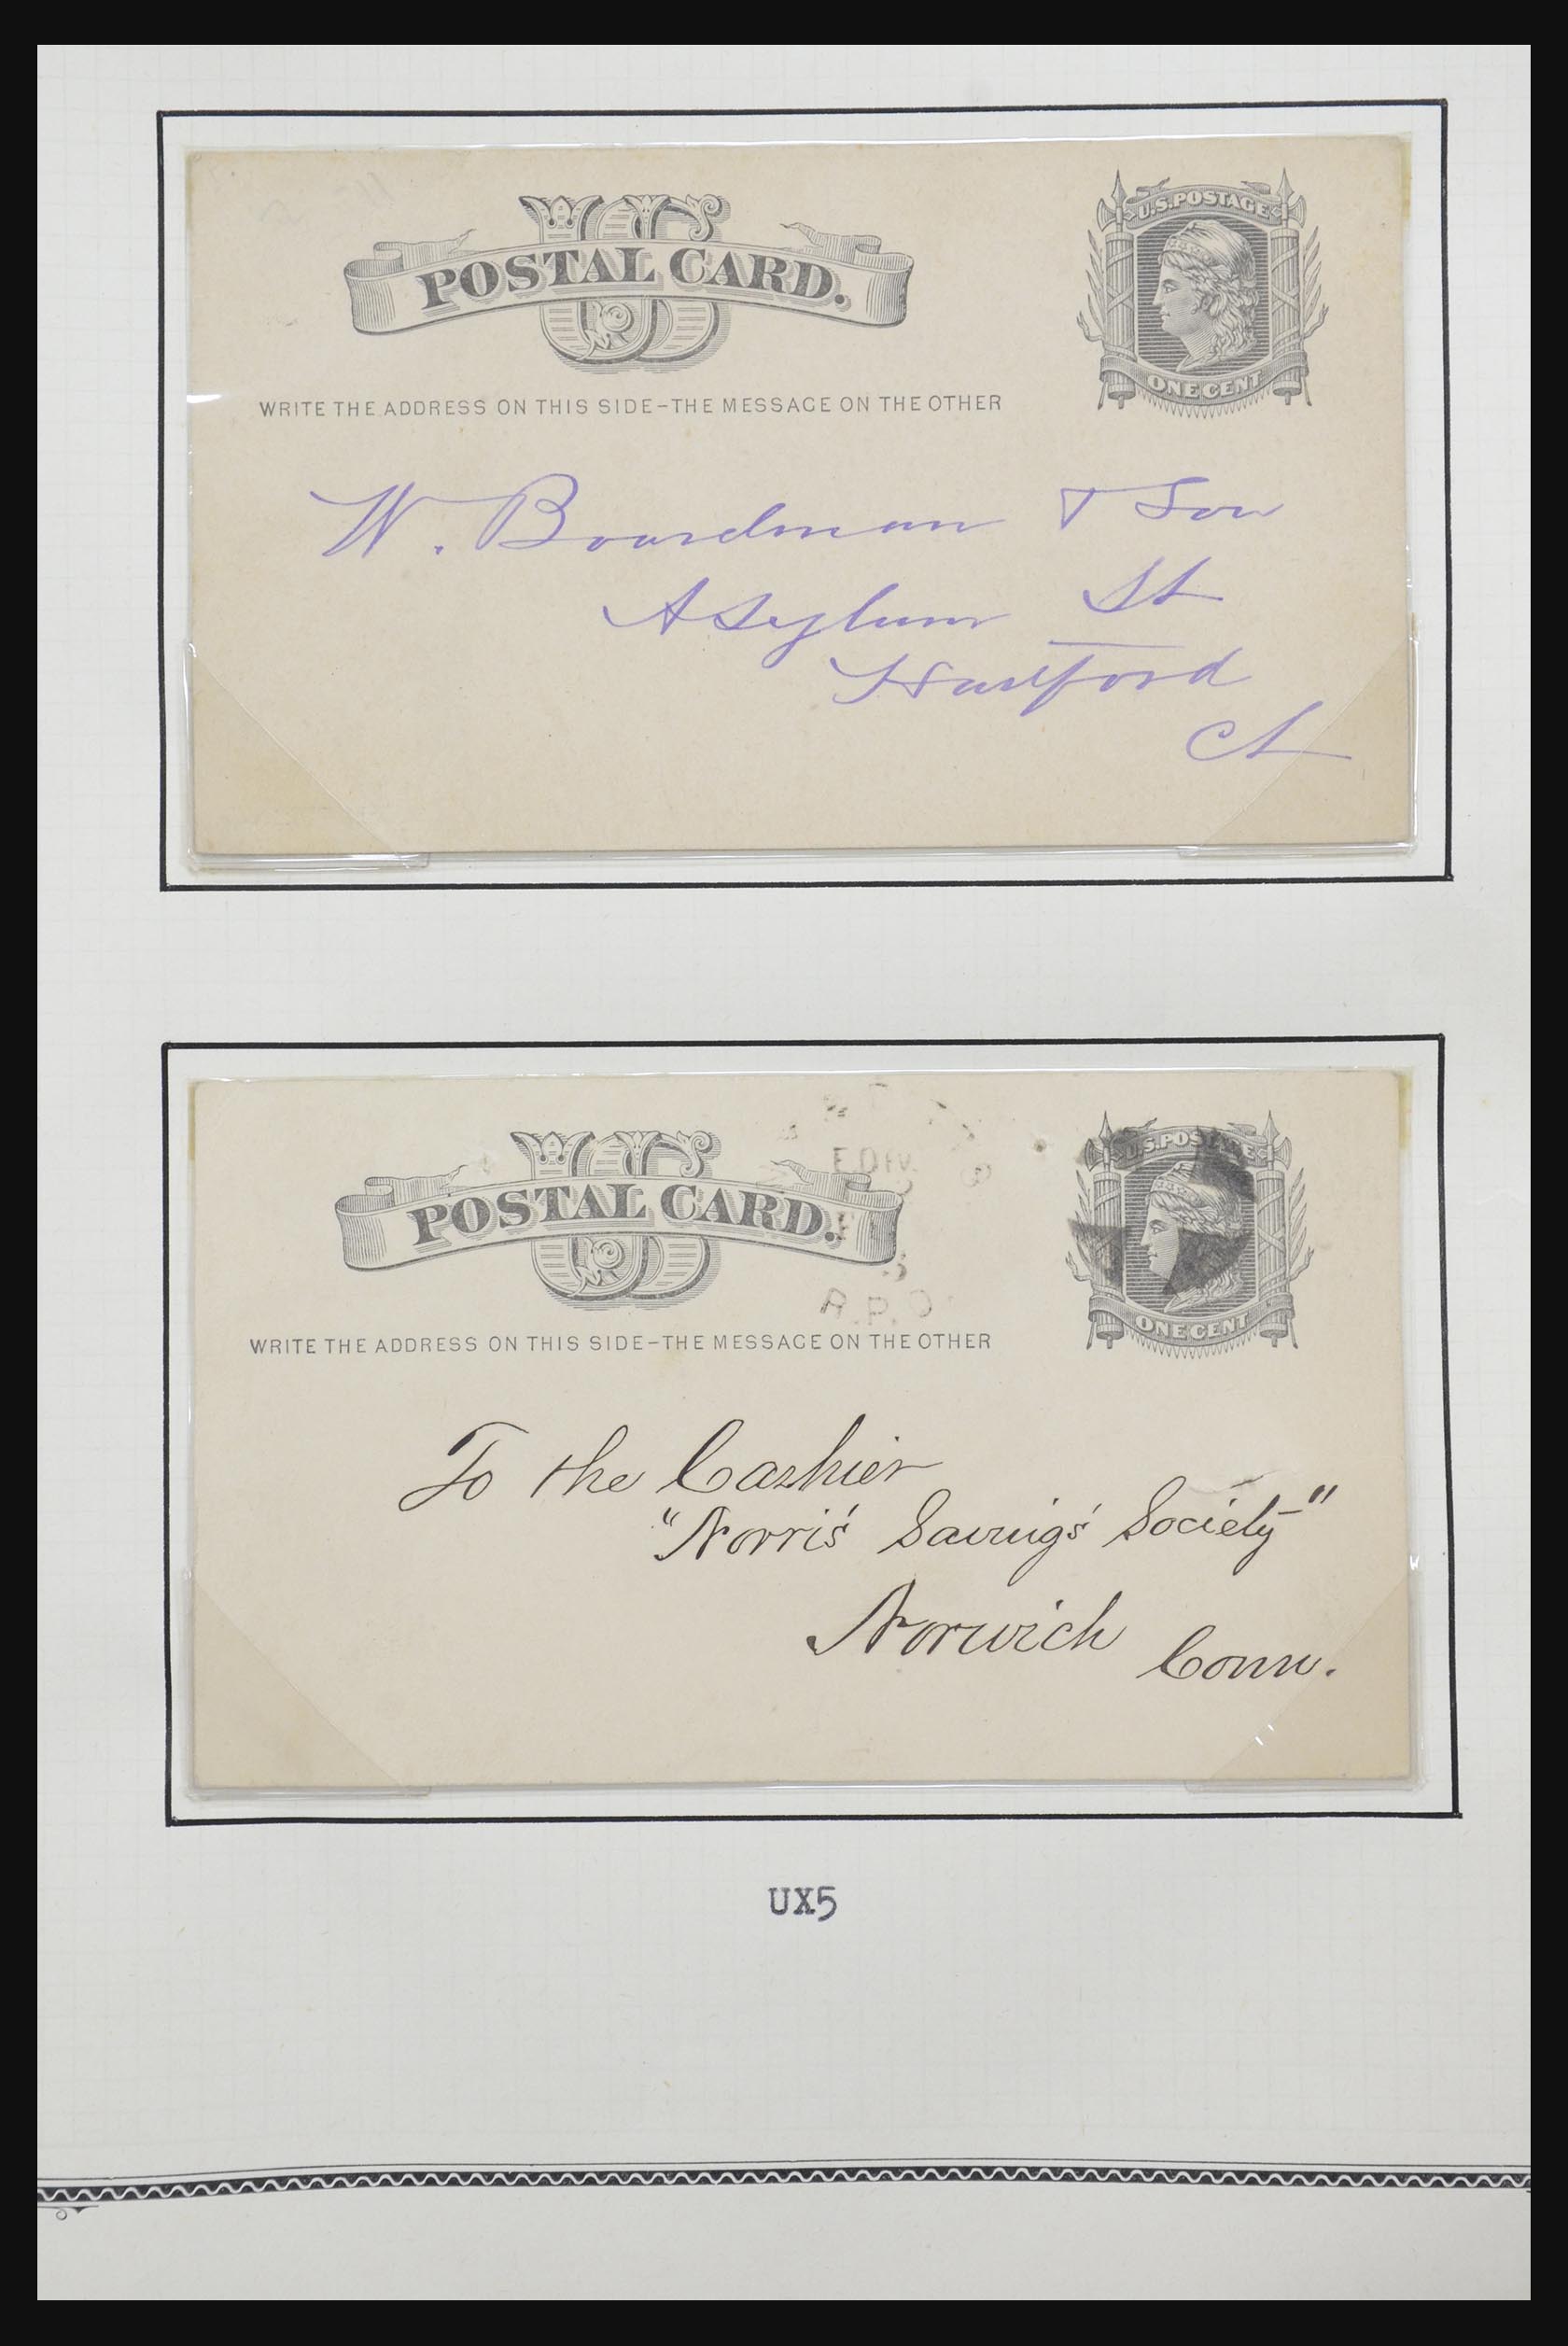 US
POSTAL CARD.
U.S.POSTAGE
ONE CENT
WRITE THE ADDRESS ON THIS SIDE-THE MESSAGE ON THE OTHER
W. Boardman & Son
Asylum St
Hartford
Ct
US
POSTAL CARD.
E.DIV.
R.P.O
U.S.POSTAGE
ONE CENT
WRITE THE ADDRESS ON THIS SIDE-THE MESSAGE ON THE OTHER
To the Cashier
"Norris' Saving's Society"
Norwich
Conn.
UX5